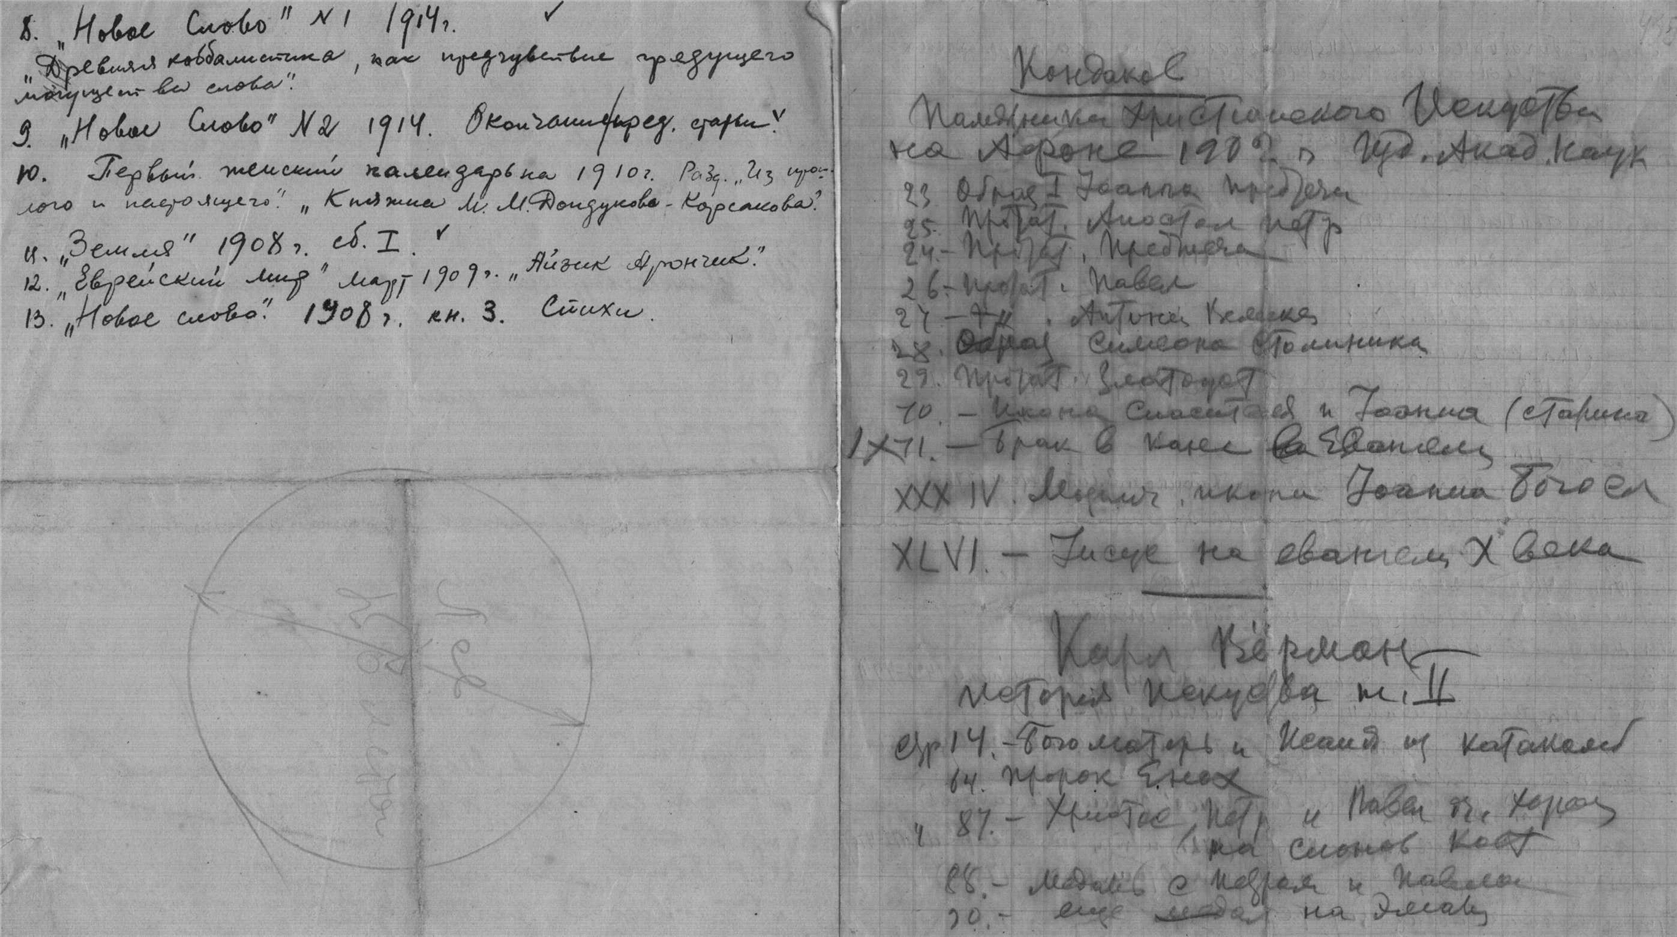 8. „Новое Слово" N 1 1914г.
„Древняя каббалистика, как предчувствие грядущего
могущества слова".
9. „Новое Слово" N 2 1914. Окончание пред. статьи.
10. Первый женский календарь на 1910г. Разд. „Из прош-
лого и настоящего". „Княжна М. М. Дондукова-Корсакова".
11. „Земля" 1908г. сб. I.
12. „Еврейский мир" март 1909г. „Айзик Арончик".
13. „Новое слово". 1908г. кн. 3. Стихи.
Кондаков
Памятники Христианского Искусства
на Афоне 1902 г. Изд. Акад. Наук
23 Образ Иоанна Предтечи
25. Протат. Апостол Петр
24- Протат. Предтеча
26- Протат. Павел
27 - Антоний Великий
28. Образ Симеона Столпника
29. Протат. Златоуст
10. - Икона Спасителя и Иоанна (старина)
11. - Брак в Кане Евангел
XXXIV. икона Иоанна Богосл
XLVI. - Иисус на евангел X века
Карл Вёрман
История Искусства т. II
стр 14. - Богоматерь и Исайя из катакомб
64. Пророк Енох
" 87. - Христос, Петр и Павел
на слонов кост
88. - Медаль с Петром и Павлом
90. - еще на эмали